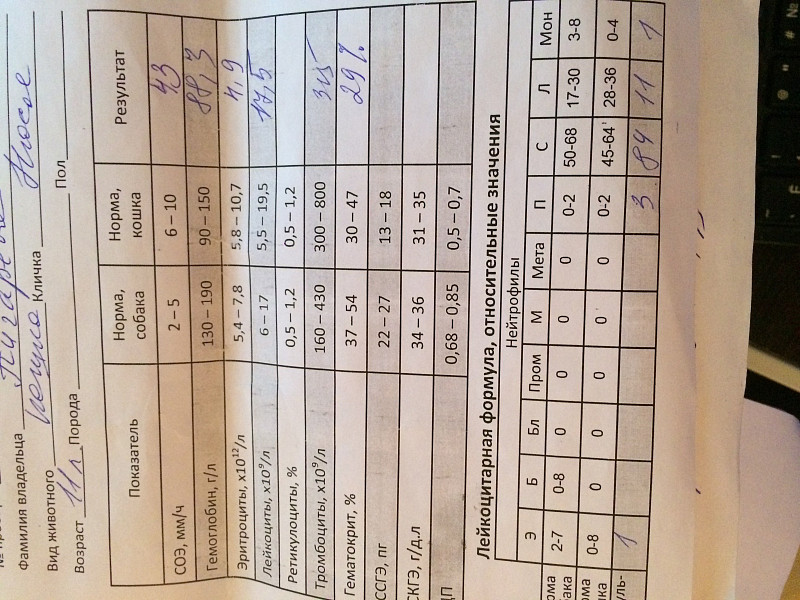 Фамилия владельца
Вид животного кошка Кличка Нюся
Возраст 11 л. Порода Пол
Показатель Норма, собака Норма, кошка Результат
СОЭ, мм/ч 2 – 5 6 – 10 43
Гемоглобин, г/л 130 – 190 90 – 150 88,3
Эритроциты, х10¹²/л 5,4 – 7,8 5,8 – 10,7 4,9
Лейкоциты, х10⁹/л 6 – 17 5,5 – 19,5 17,5
Ретикулоциты, % 0,5 – 1,2 0,5 – 1,2
Тромбоциты, х10⁹/л 160 – 430 300 – 800 315
Гематокрит, % 37 – 54 30 – 47 29%
ССГЭ, пг 22 – 27 13 – 18
СКГЭ, г/д.л 34 – 36 31 – 35
ЦП 0,68 – 0,85 0,5 – 0,7
Лейкоцитарная формула, относительные значения
Нейтрофилы
Э Б Бл Пром М Мета П С Л Мон
2-7 0-8 0 0 0 0 0-2 50-68 17-30 3-8
0-8 0 0 0 0 0 0-2 45-64 28-36 0-4
1 3 84 11 1